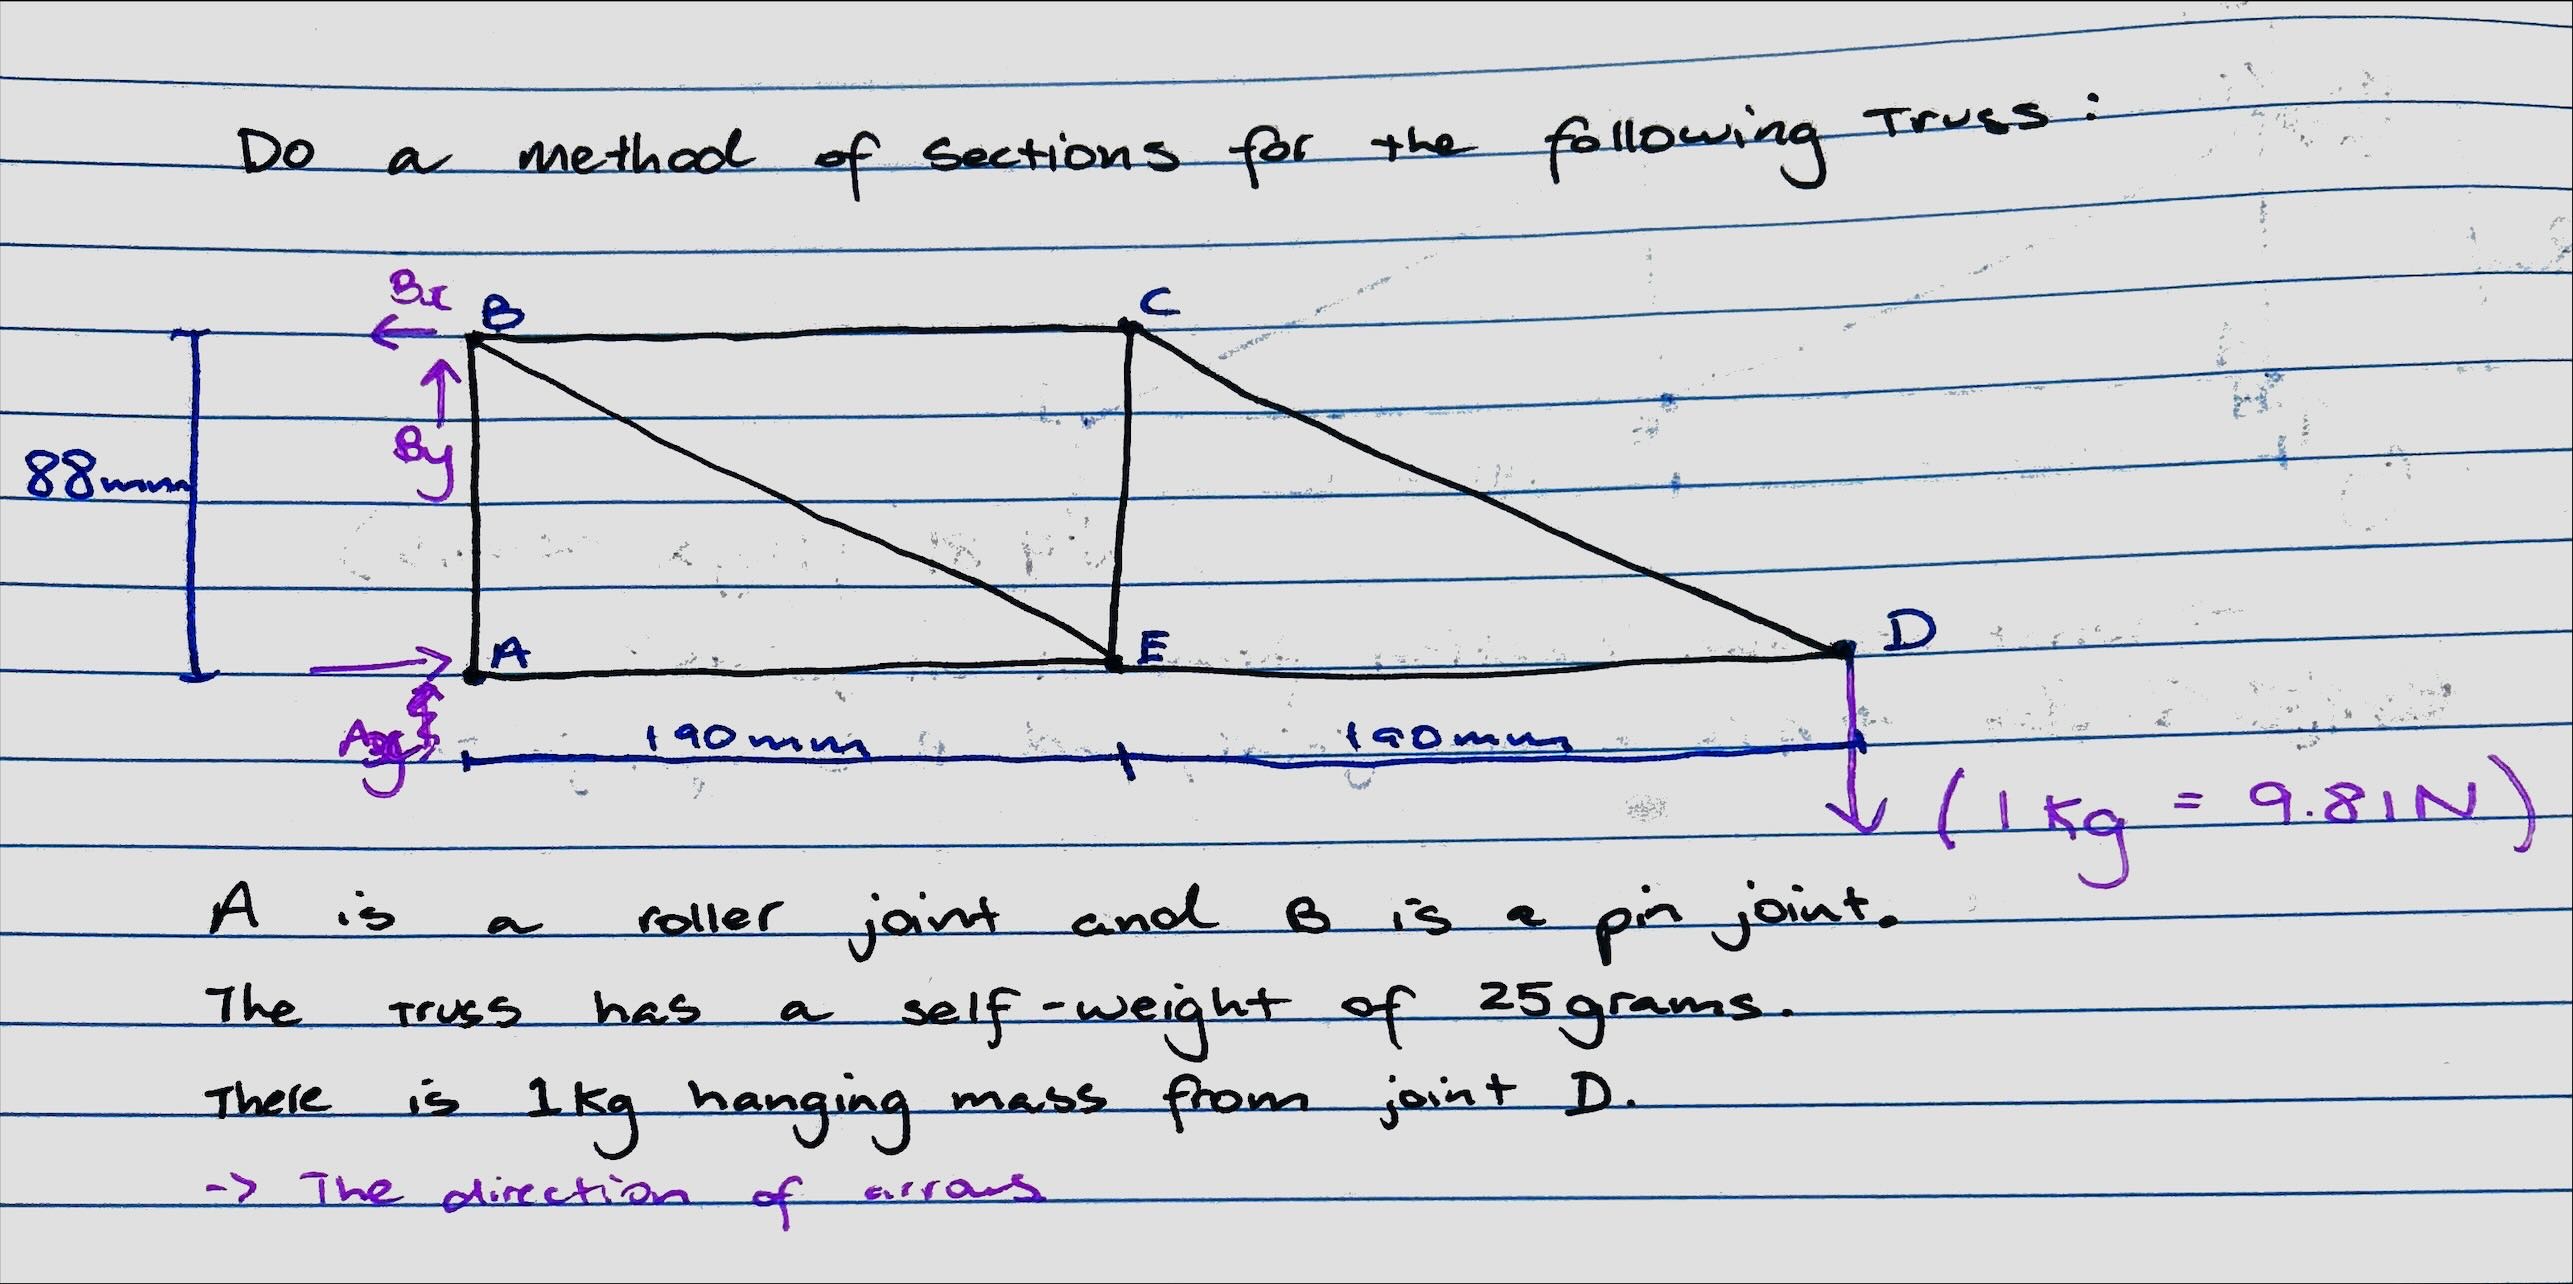 Do a method of sections for the following Truss:
Bx
B
C
By
88mm
A
E
D
190mm
190mm
(1kg = 9.81N)
A is a roller joint and B is a pin joint.
The truss has a self-weight of 25grams.
There is 1kg hanging mass from joint D.
-> The direction of arrows